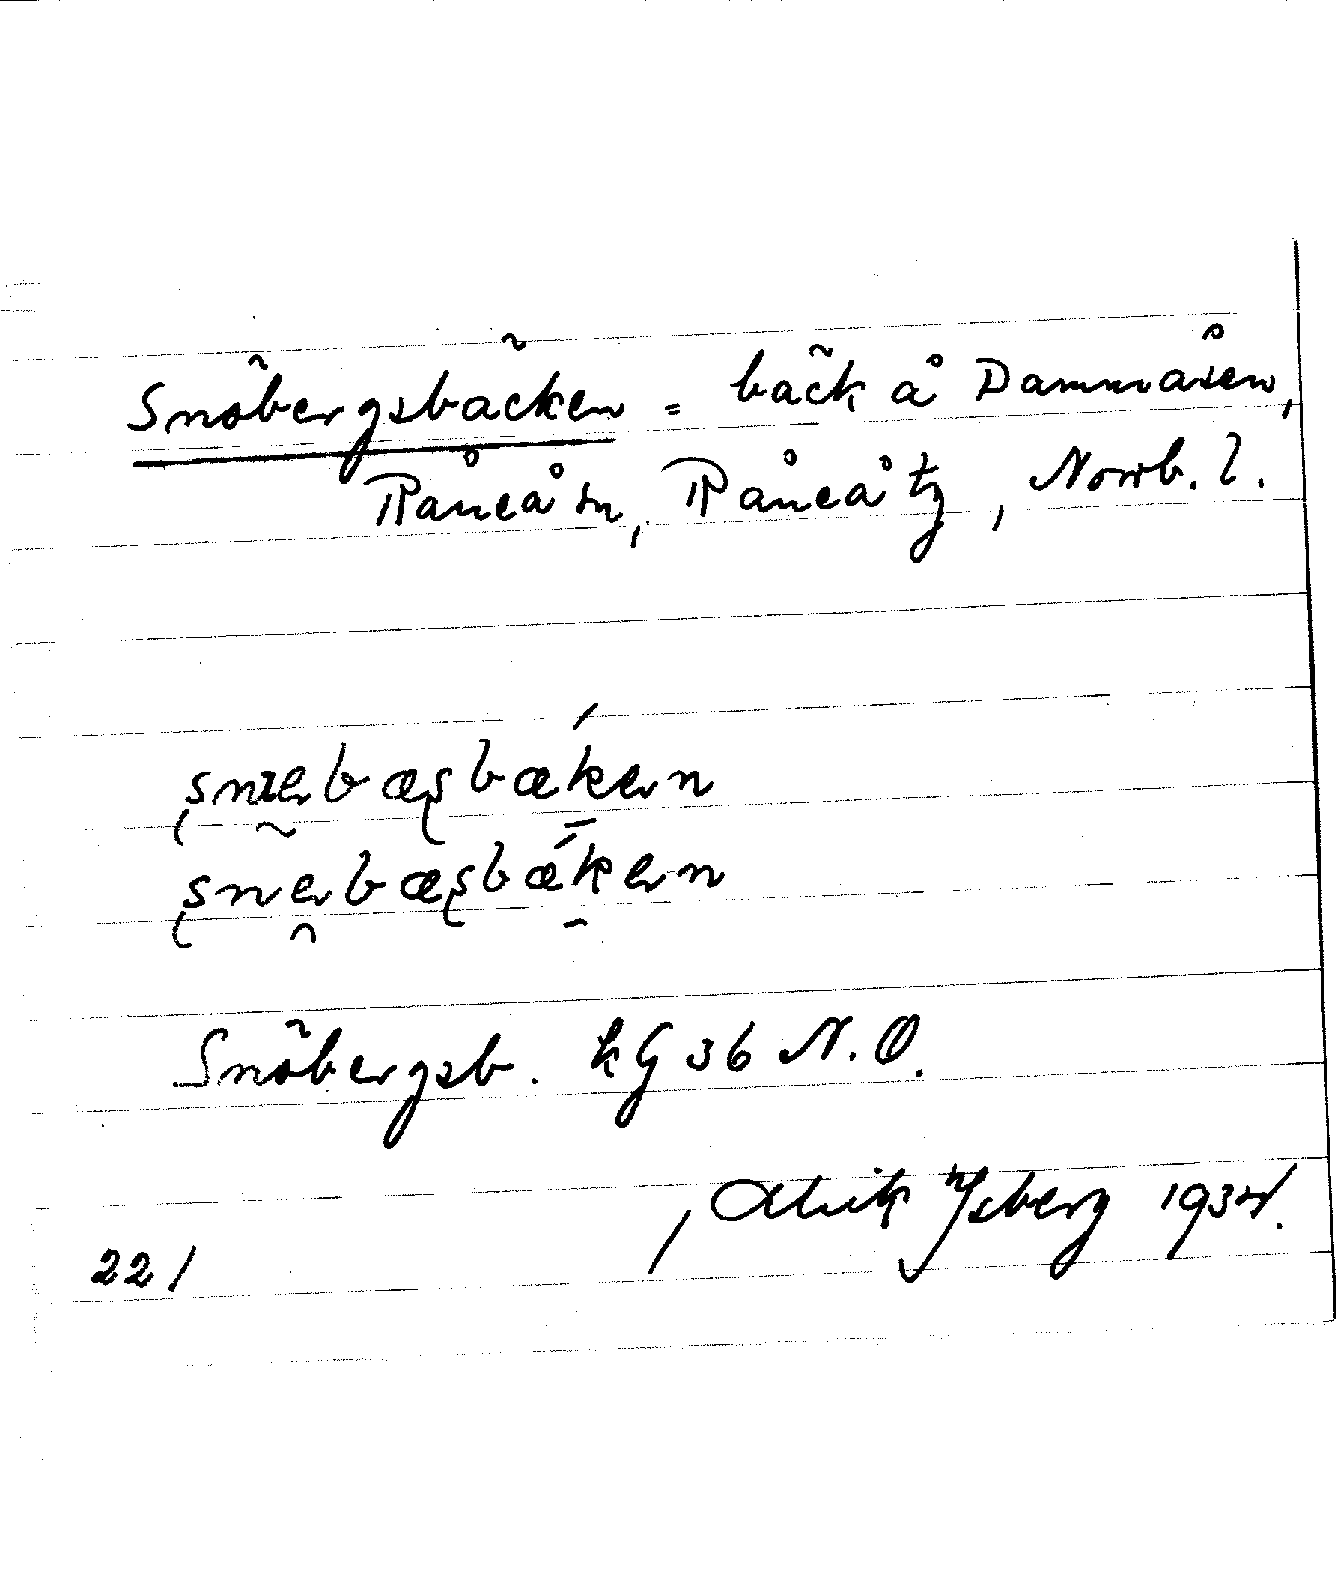 Snöbergsbäcken = bäck å Dammåsen,
Råneå sn, Råneå tg, Norrb. l.
snɪebæsbæken
snebæsbæken
Snöbergsb. kG 36 N.O.
/ Alrik Ysberg 1934.
22 /